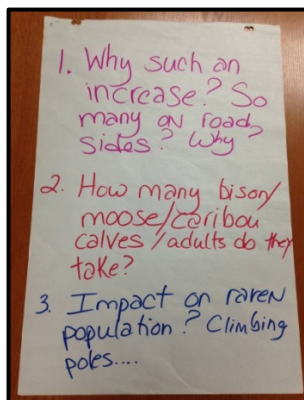 1. Why such an
increase? So
many on road
sides? Why?
2. How many bison/
moose/caribou
calves/adults do they
take?
3. Impact on raven
population? Climbing
poles....